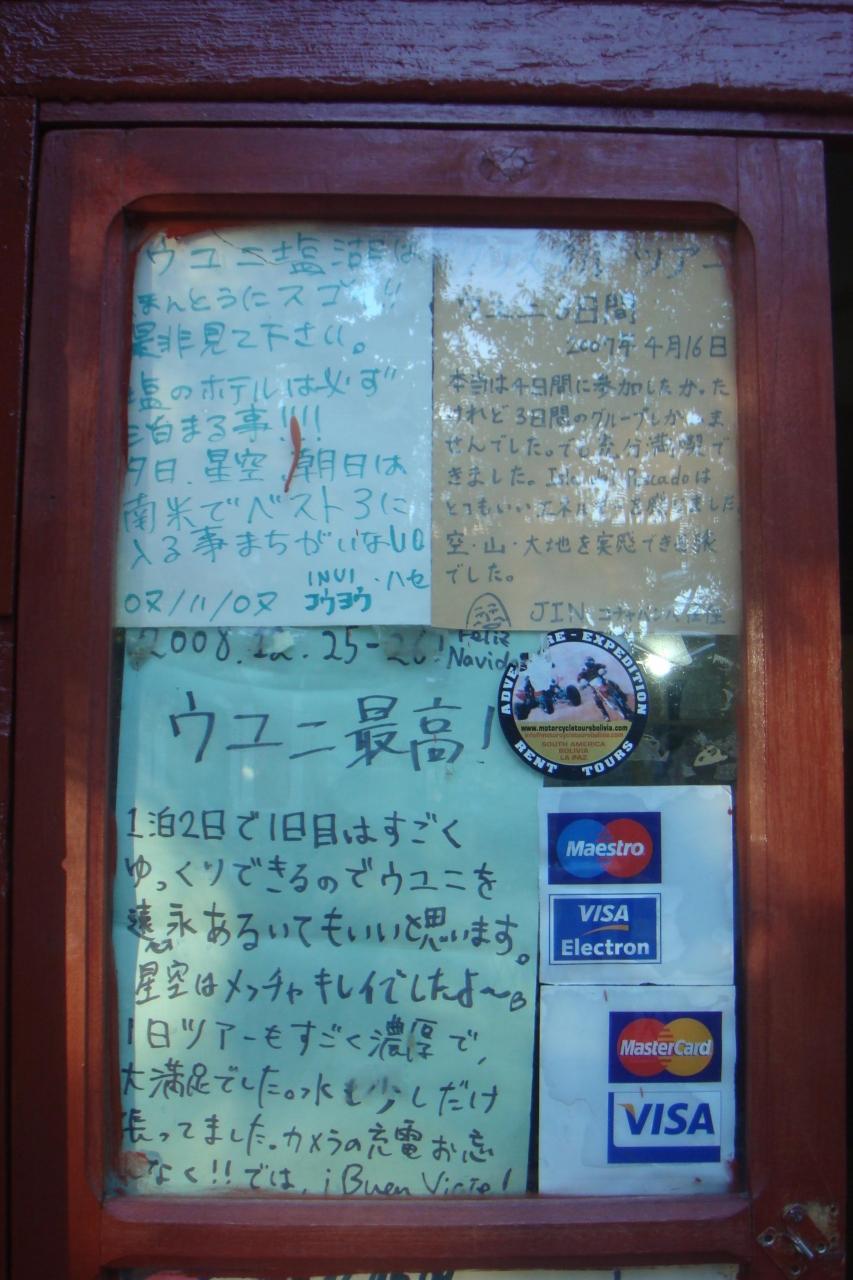 ウユニ塩湖は
まんとうにスゴイ!!
是非見て下さい。
塩のホテルは必ず
泊まる事!!!!
夕日、星空、朝日は
南米でベスト3に
入る事まちがいない
INUI・ハセ
コウヨウ
07/11/07
ツアー
ウユニ3日間
2007年4月16日
本当は4日間に参加したかった
けれど3日間のグループしかいま
せんでした。でも充分満喫で
きました。Island Pescadoは
とてもいいエネルギーを感じました。
空・山・大地を実感できる旅
でした。
JIN
2008.12.25-26!
Feliz
Navidad
ウユニ最高!
1泊2日で1日目はすごく
ゆっくりできるのでウユニを
永遠あるいてもいいと思います。
星空はメッチャキレイでしたよ〜
1日ツアーもすごく濃厚で、
大満足でした。水も少しだけ
張ってました。カメラの充電お忘
れなく!!では、¡Buen Viaje!
ADVENTURE - EXPEDITION
www.motorcycletoursbolivia.com
info@motorcycletoursbolivia.com
SOUTH AMERICA
BOLIVIA
LA PAZ
RENT TOURS
Maestro
VISA
Electron
MasterCard
VISA